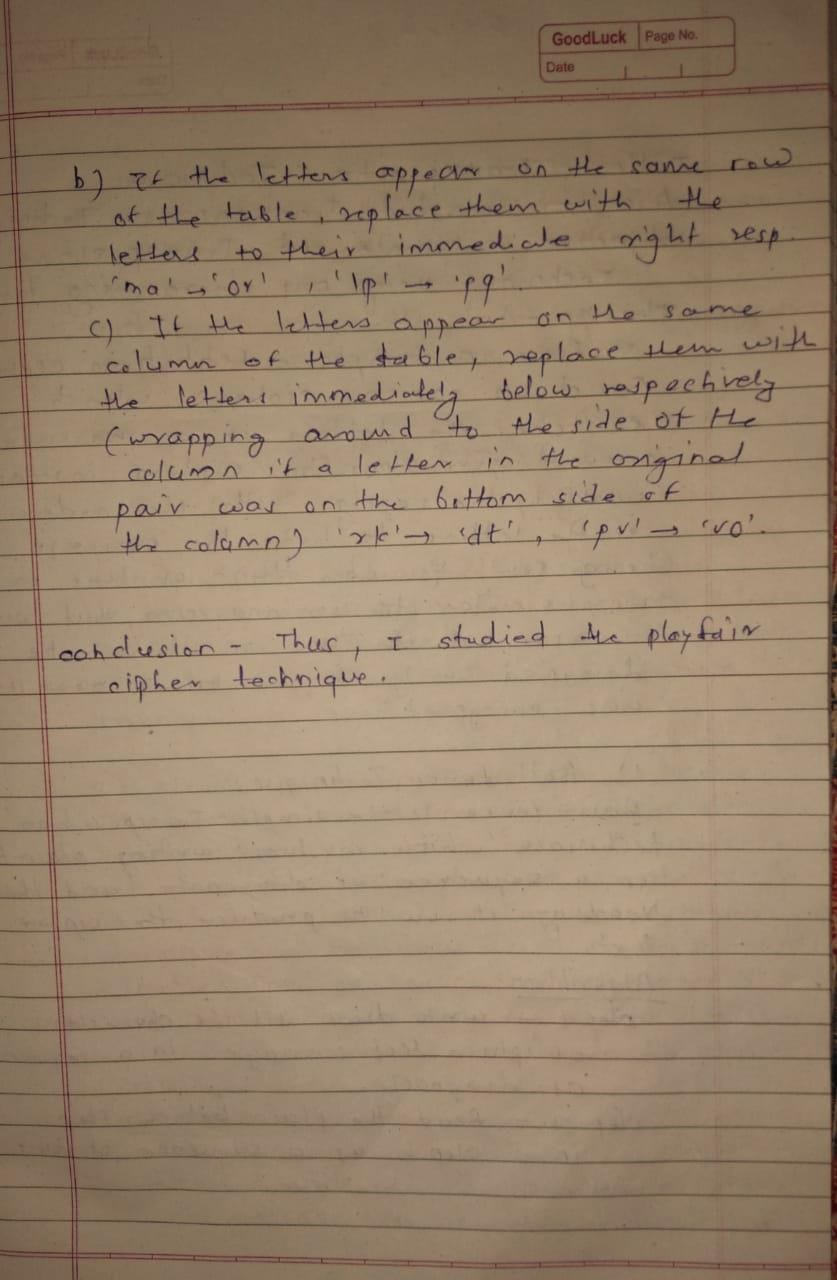 GoodLuck Page No.
Date
b) If the letters appear on the same row
of the table, replace them with the
letters to their immediate right resp.
'ma' → 'or', 'lp' → 'pq'.
c) If the letters appear on the same
column of the table, replace them with
the letters immediately below respectively
(wrapping around to the side of the
column if a letter in the original
pair was on the bottom side of
the column) 'rk' → 'dt', 'pv' → 'vo'.
conclusion - Thus, I studied the playfair
cipher technique.